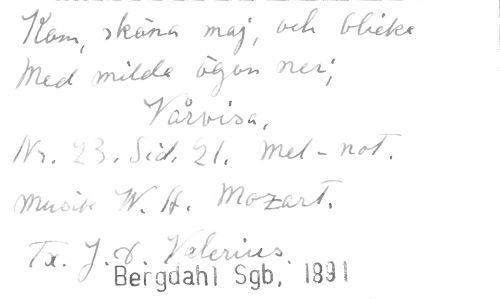 Kom, sköna maj, och blicka
Med milda ögon ner;
Vårvisa,
Nr. 23. Sid. 21. Mel-not.
Musik W. A. Mozart.
Tx. J. D. Valerius.
Bergdahl Sgb, 1891